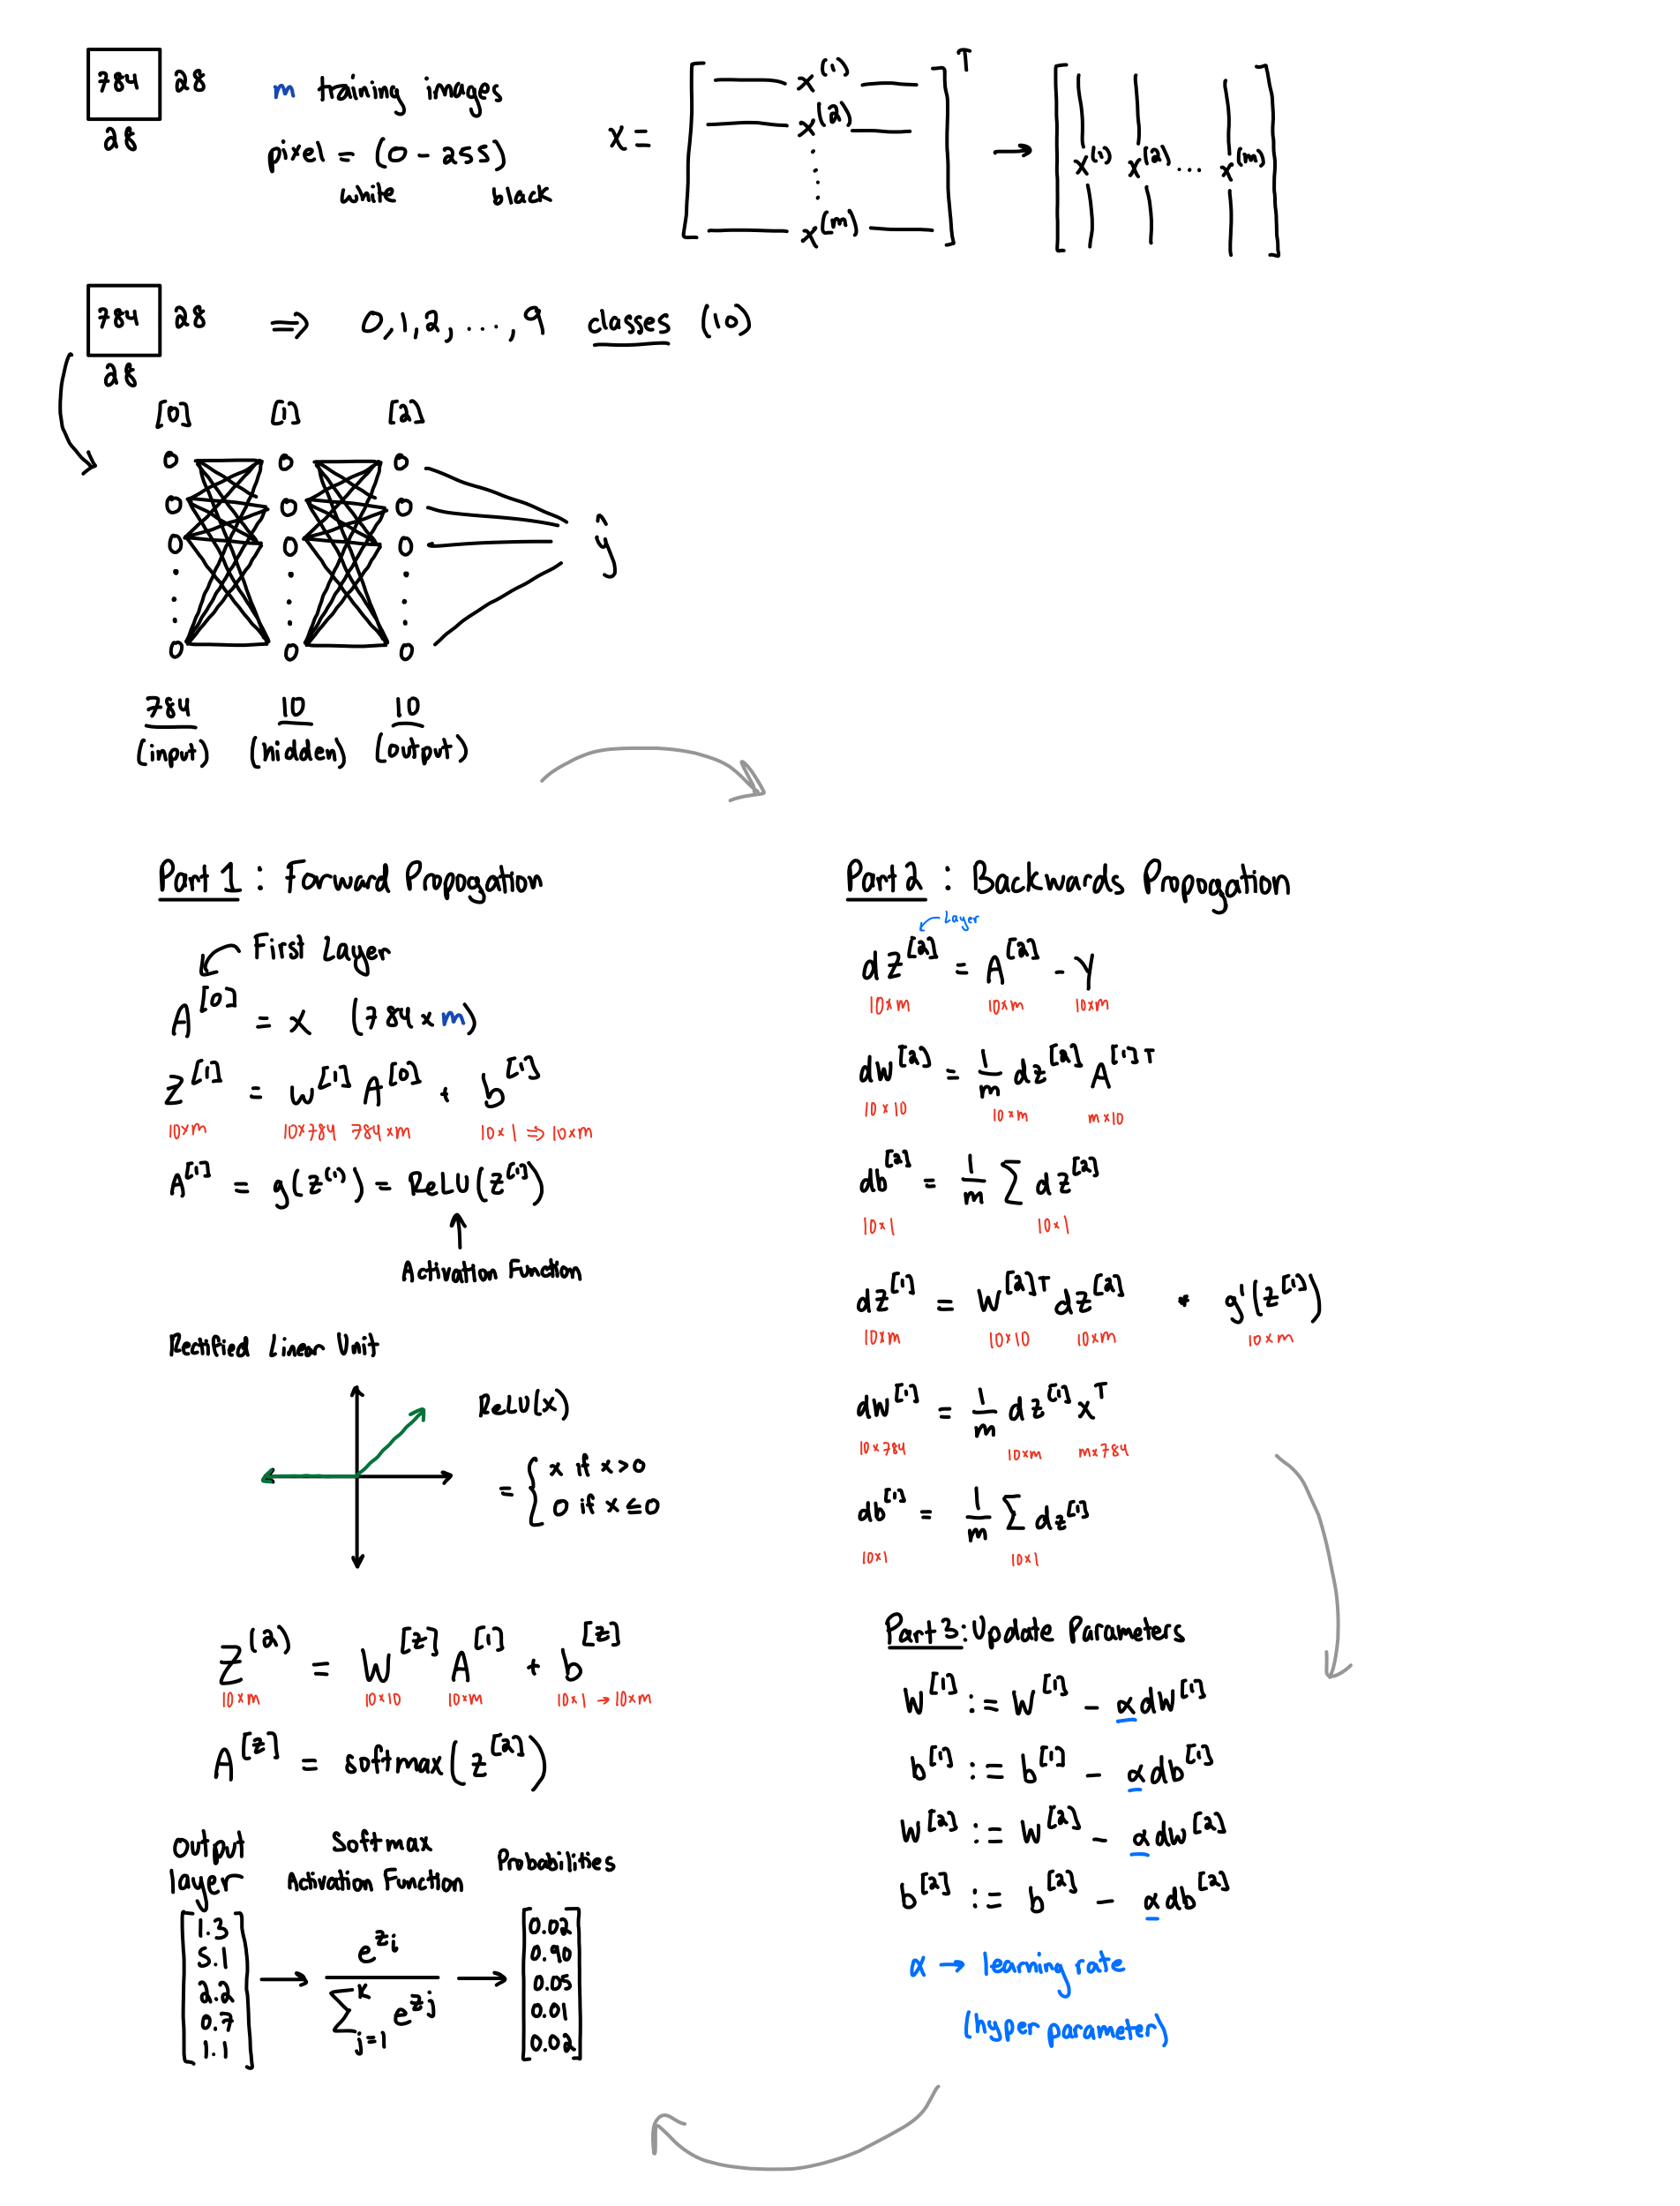 784 28
28
m training images
pixel = (0 - 255)
white black
X = [ — x^(1) — ]^T → [ | | | ]
— x^(2) —
x^(1) x^(2) ... x^(m)
— x^(m) —
784 28 ⇒ 0, 1, 2, ..., 9 classes (10)
28
[0] [1] [2]
ŷ
784 10 10
(input) (hidden) (output)
Part 1 : Forward Propogation
First Layer
A^[0] = x (784 × m)
z^[1] = w^[1] A^[0] + b^[1]
10×m 10×784 784×m 10×1 ⇒ 10×m
A^[1] = g(z^(1)) = ReLU(z^[1])
Activation Function
Rectified Linear Unit
ReLU(x)
= { x if x>0
0 if x≤0
Z^(2) = W^[z] A^[1] + b^[z]
10×m 10×10 10×m 10×1 → 10×m
A^[z] = softmax(z^[2])
Output layer
Softmax Activation Function
Probabilities
1.3
5.1
2.2
0.7
1.1
e^zi
∑^K j=1 e^zj
0.02
0.90
0.05
0.01
0.02
Part 2 : Backwards Propogation
Layer
dz^[2] = A^[2] - Y
10×m 10×m 10×m
dw^[2] = 1/m dz^[2] A^[1]T
10×10 10×m m×10
db^[2] = 1/m ∑ dz^[2]
10×1 10×1
dz^[1] = W^[2]T dz^[2] * g'(z^[1])
10×m 10×10 10×m 10×m
dW^[1] = 1/m dz^[1] x^T
10×784 10×m m×784
db^[1] = 1/m ∑ dz^[1]
10×1 10×1
Part 3: Update Parameters
W^[1] := W^[1] - αdW^[1]
b^[1] := b^[1] - αdb^[1]
W^[2] := W^[2] - αdw^[2]
b^[2] := b^[2] - αdb^[2]
α → learning rate
(hyper parameter)